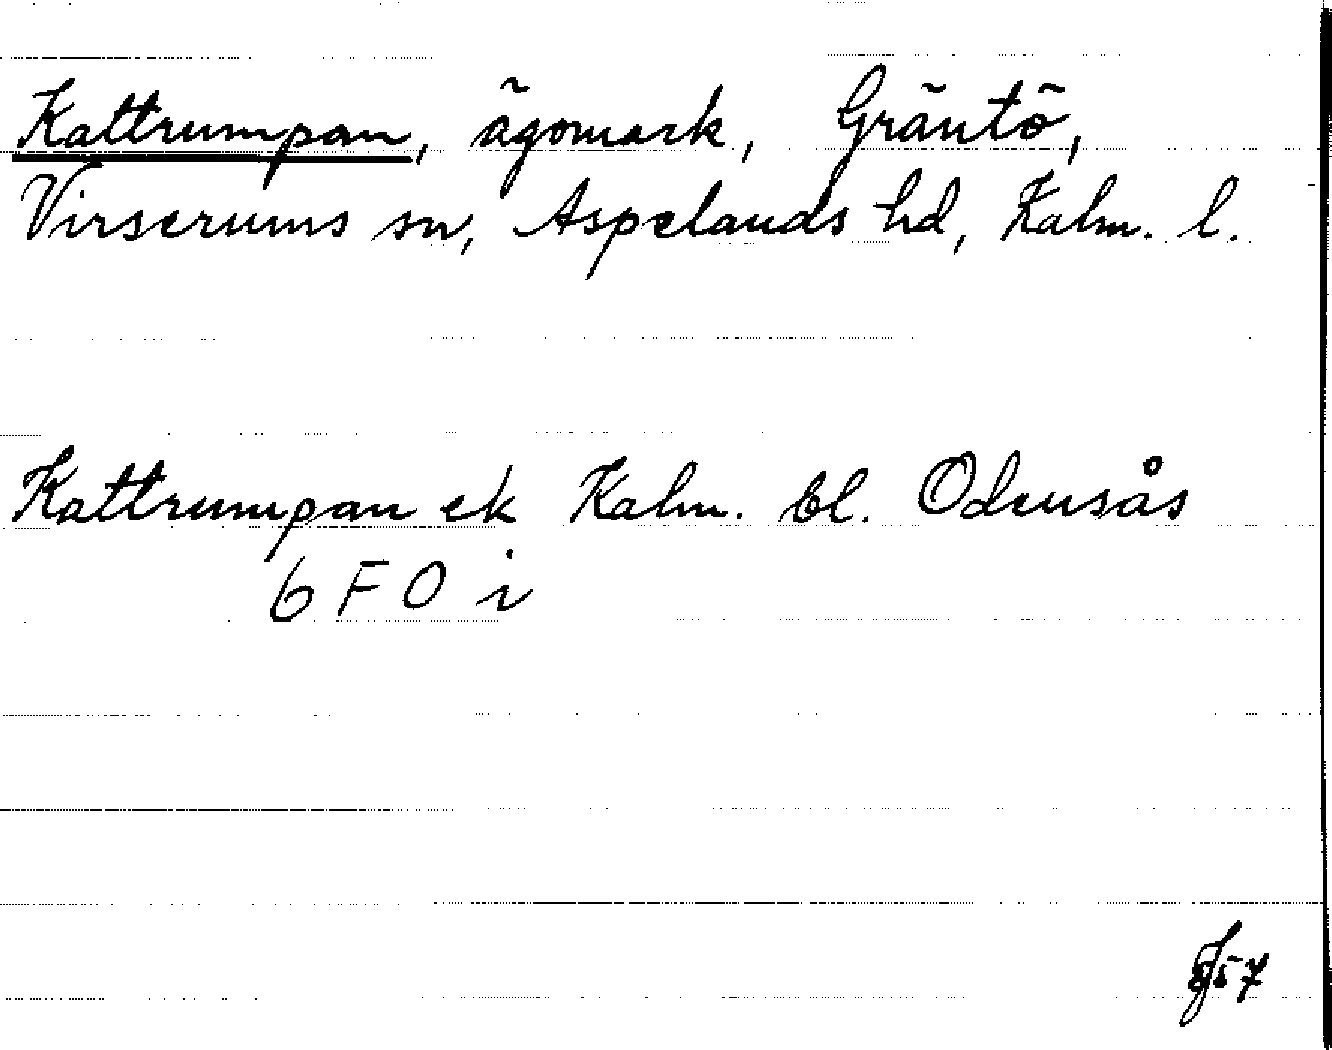 Kattrumpan, ägomark, Gräntö,
Virserums sn, Aspelands hd, Kalm. l.
Kattrumpan ek Kalm. bl. Odensås
6 F 0 i